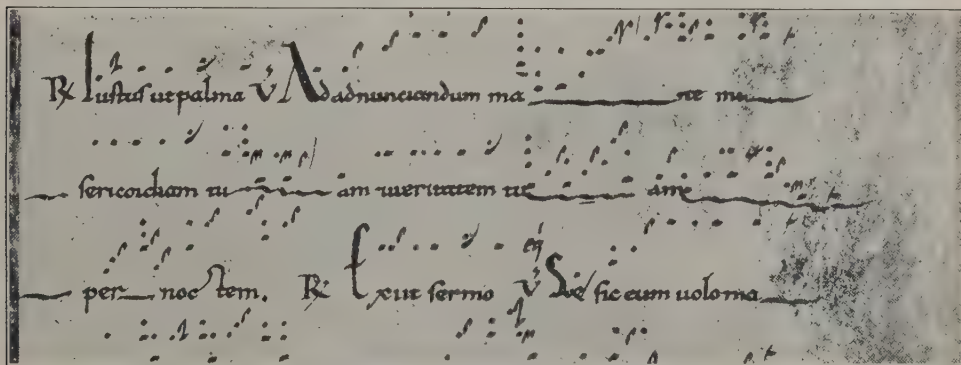 ℟ Iustus ut palma ℣ Ad adnunciandum ma ne mi
sericordiam tu am ueritatem tu am
per noc tem. ℟ Exiit sermo ℣ Sed sic eum uolo ma